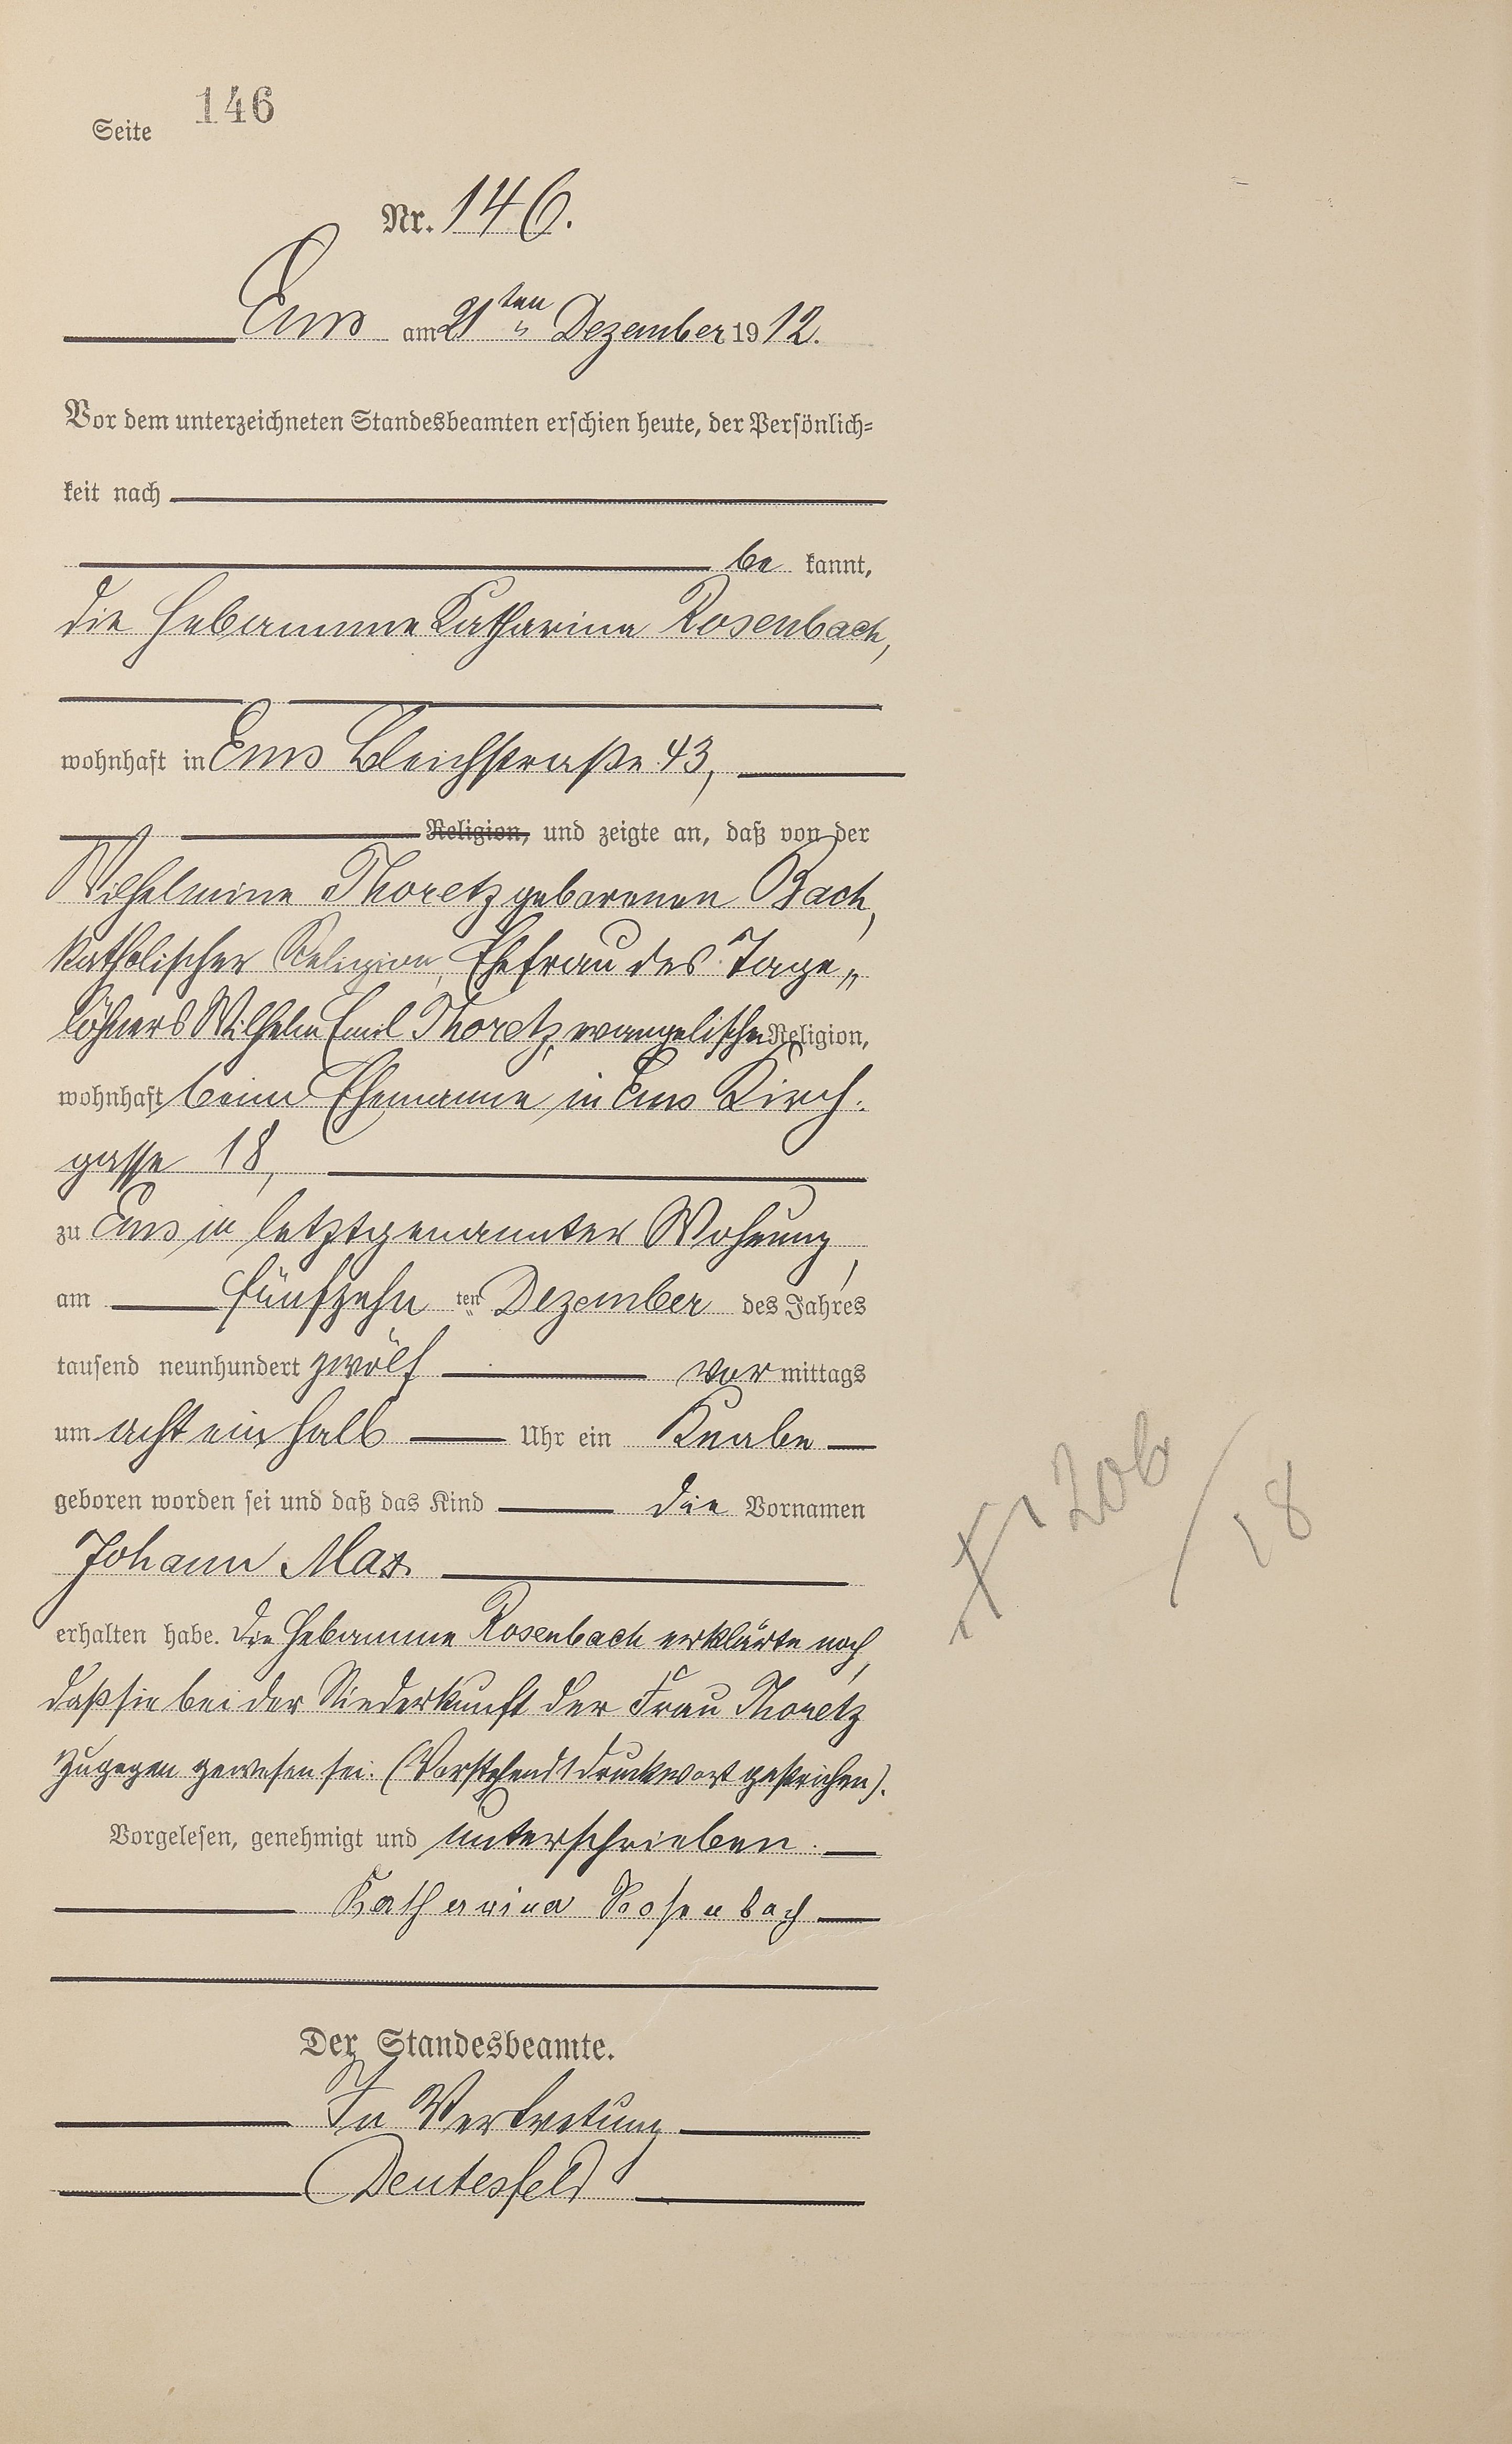 Seite 146
Nr. 146.
Ems am 21ten Dezember 1912.
Vor dem unterzeichneten Standesbeamten erschien heute, der Persönlich=
keit nach
be kannt,
die Hebamme Katharina Rosenbach,
wohnhaft in Ems Bleichstraße 43,
Religion, und zeigte an, daß von der
Wilhelmine Thoretz geborenen Bach,
katholischer Religion, Ehefrau des Tage„
löhners Wilhelm Emil Thoretz, evangelischer Religion,
wohnhaft beim Ehemanne in Ems Kirch.
gasse 18,
zu Ems in letztgenannter Wohnung,
am fünfzehn ten Dezember des Jahres
tausend neunhundert zwölf vor mittags
um acht ein halb Uhr ein Knabe
geboren worden sei und daß das Kind die Vornamen
Johann Max
erhalten habe. Die Hebamme Rosenbach erklärte noch,
daß sie bei der Niederkunft der Frau Thoretz
zugegen gewesen sei. (Vorstehend 1 Druckwort gestrichen).
Vorgelesen, genehmigt und unterschrieben.
Katharina Rosenbach
Der Standesbeamte.
In Vertretung
Deutesfeld
206/18